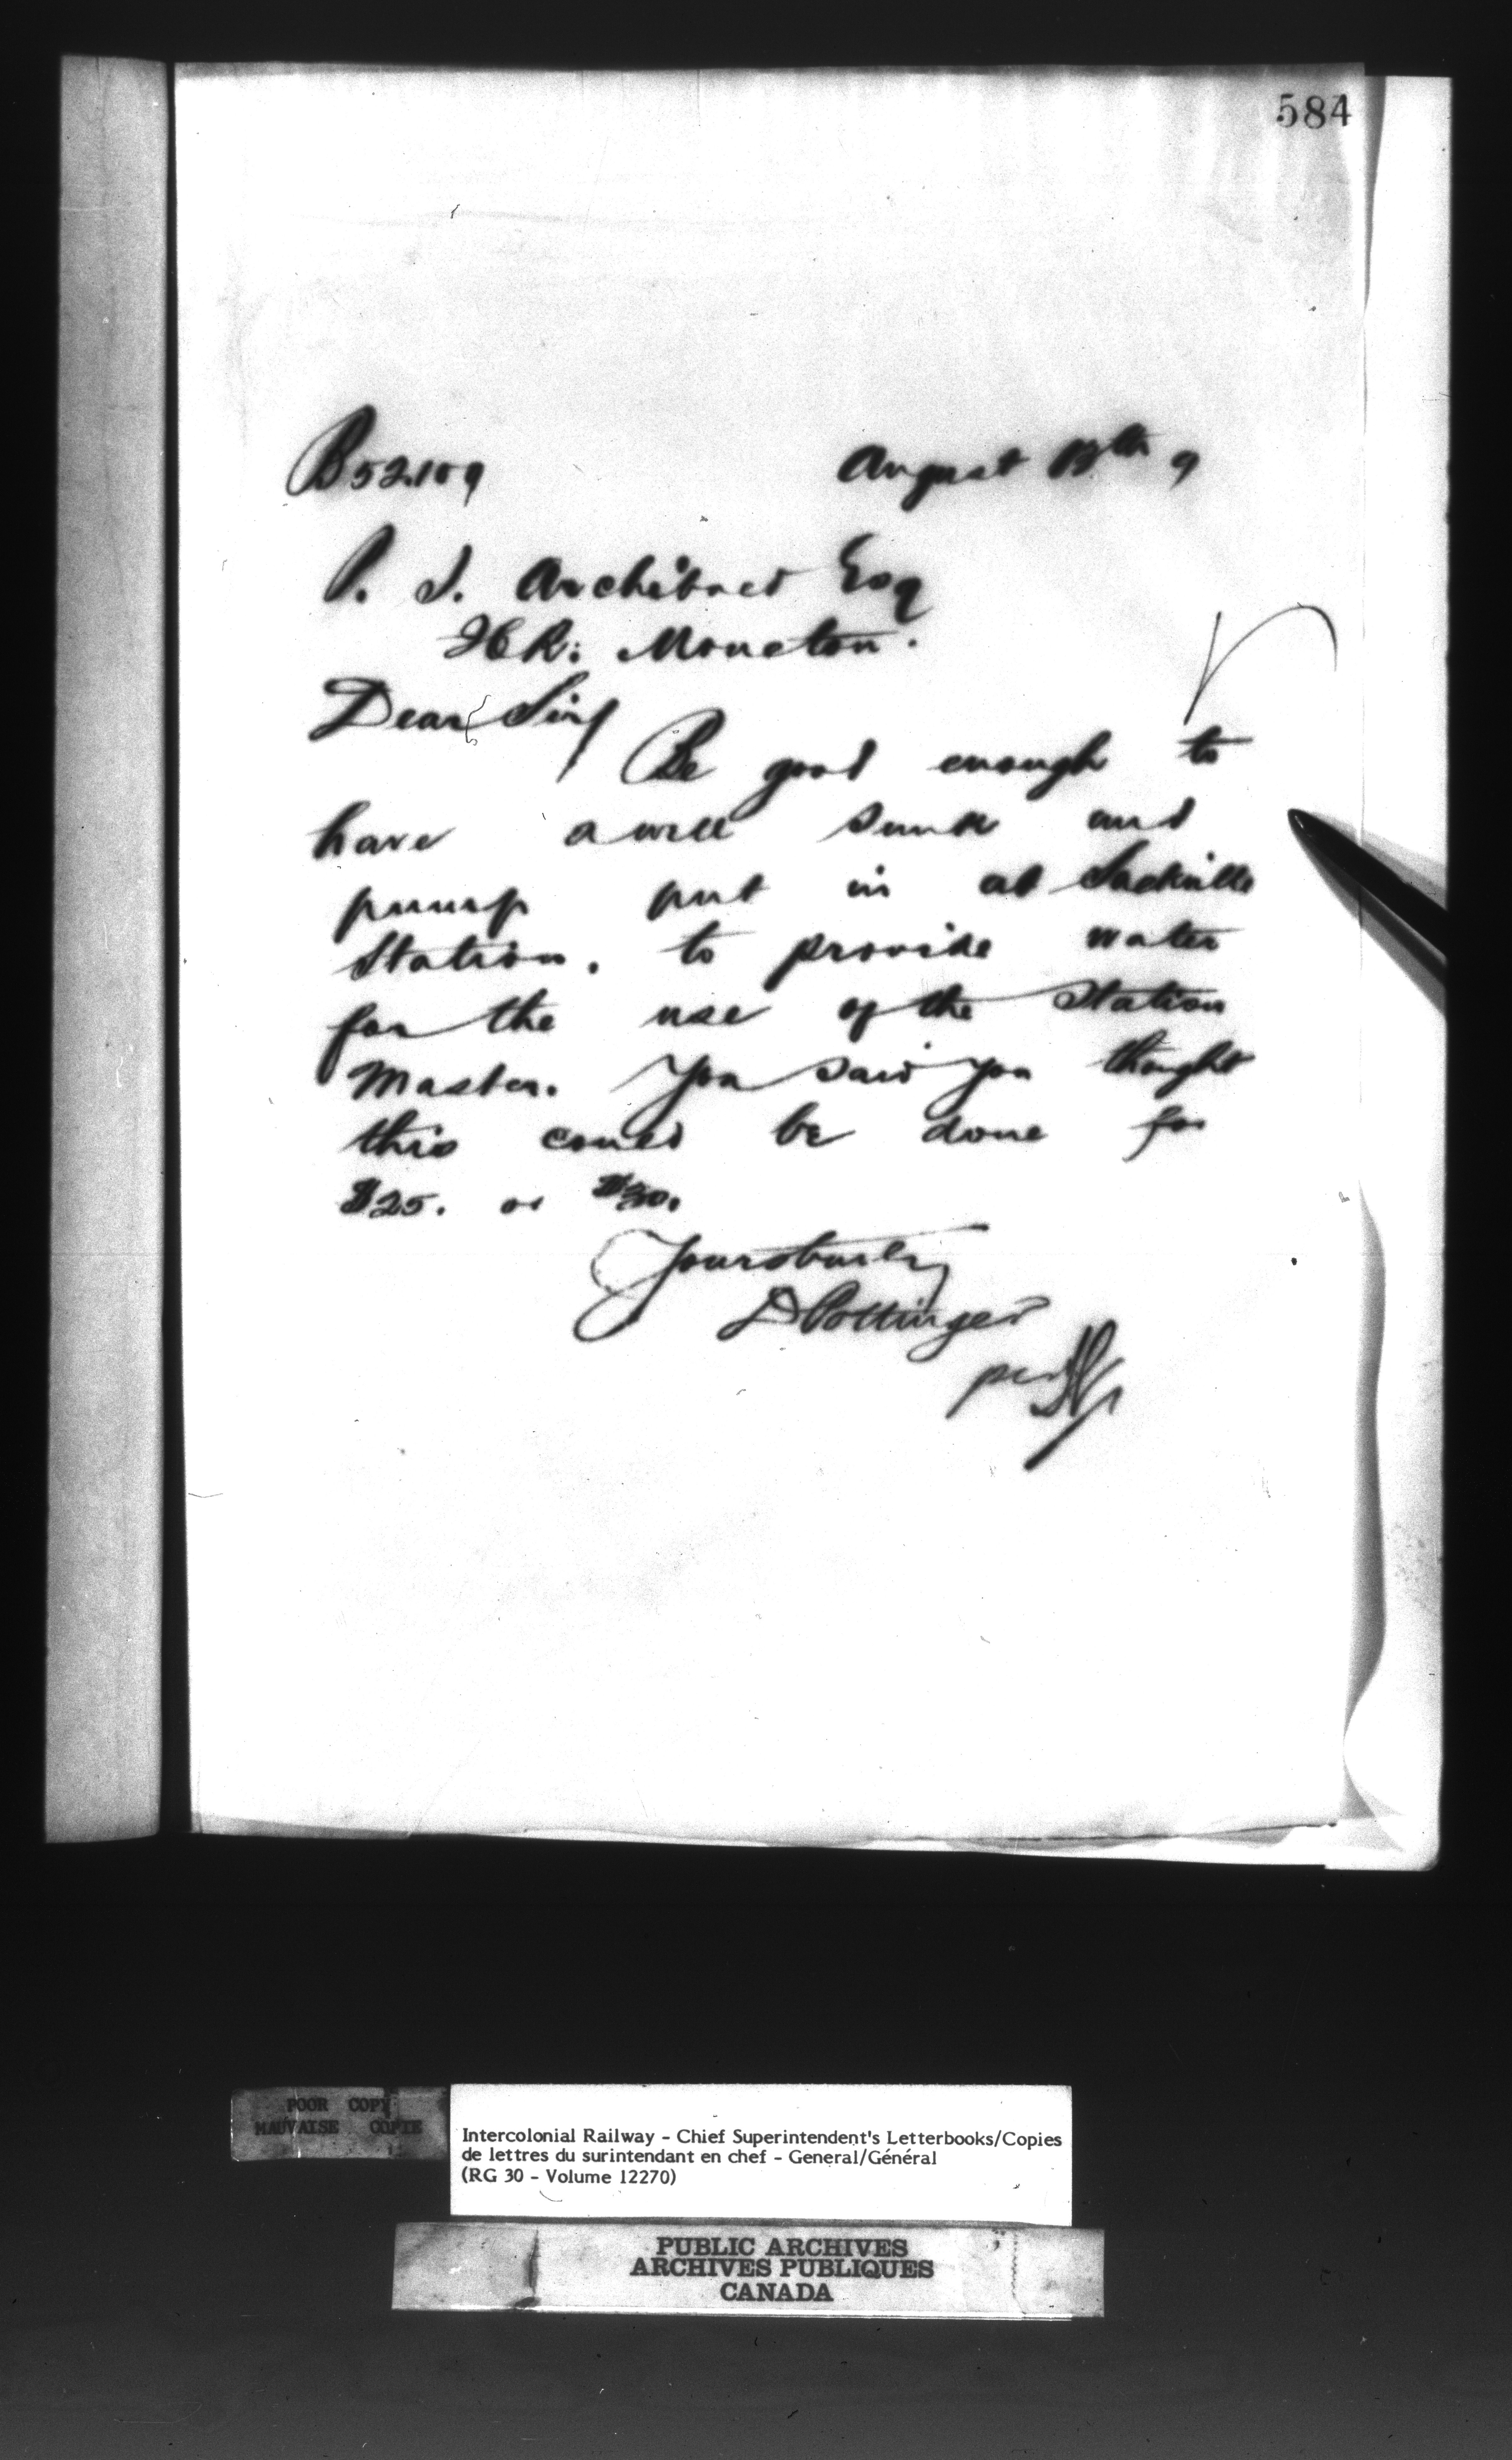 584
B52109
August 9
P. S. Archibald Esq
I.C.R. Moncton.
Dear Sir/
Be good enough to
have a well sunk and
pump put in at Sackville
Station, to provide water
for the use of the Station
Master. You said you thought
this could be done for
$25. or $30.
Yours truly
D Pottinger
per
POOR COPY
MAUVAISE COPIE
Intercolonial Railway - Chief Superintendent's Letterbooks/Copies
de lettres du surintendant en chef - General/Général
(RG 30 - Volume 12270)
PUBLIC ARCHIVES
ARCHIVES PUBLIQUES
CANADA